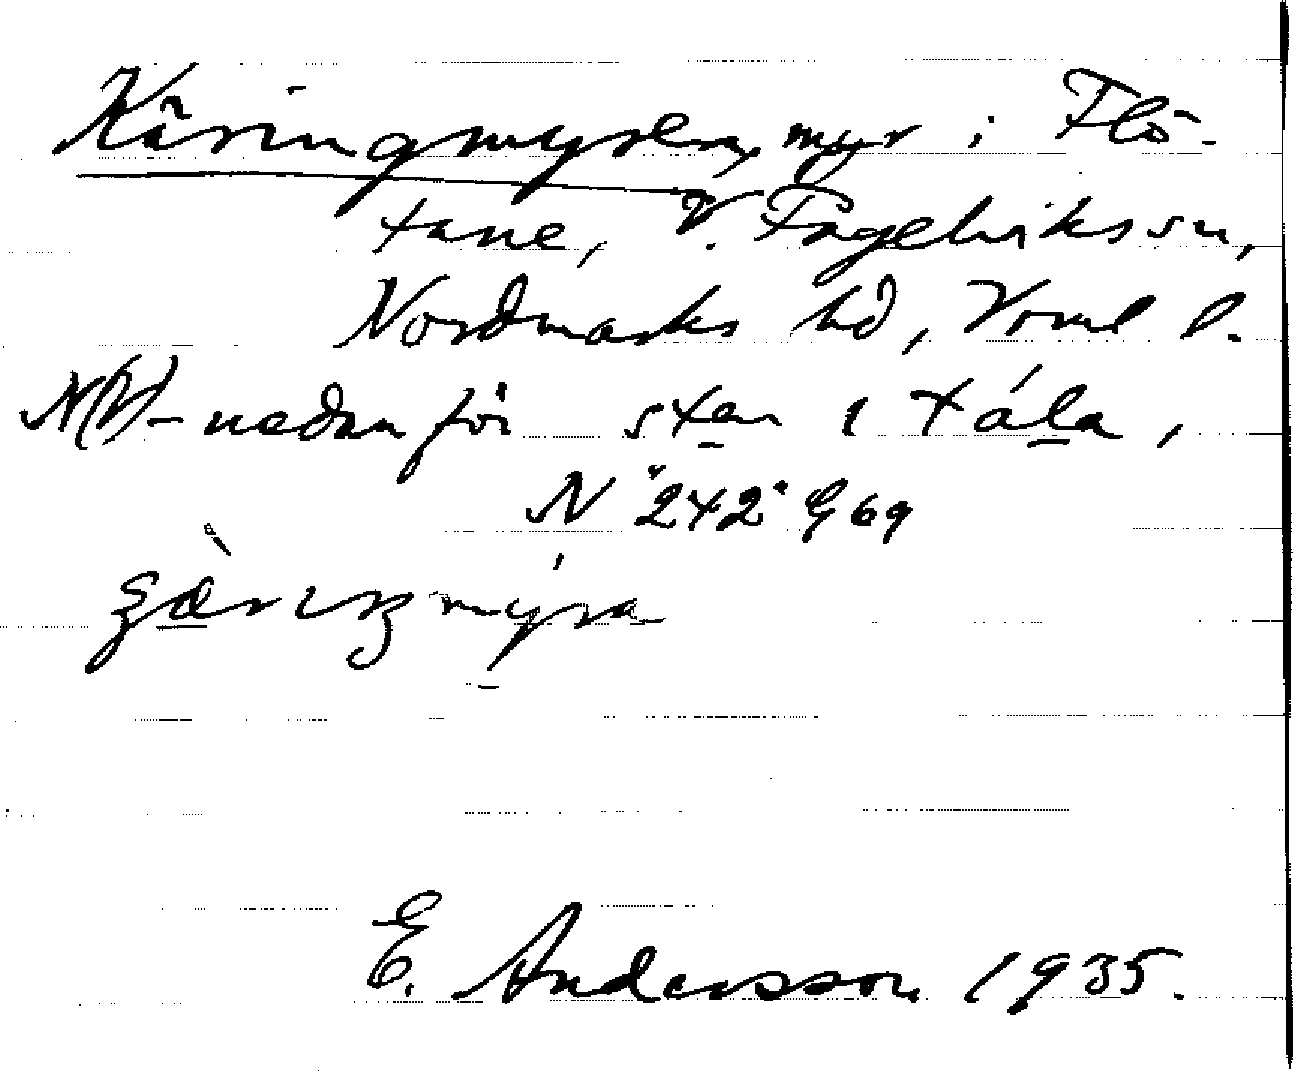 Käringmyren, myr i Flö-
tane, V. Fågelviksson,
Nordmarks hd, Vrml l.
NV-nedanför sten i tála,
N "242" G 69
E. Andersson 1935.